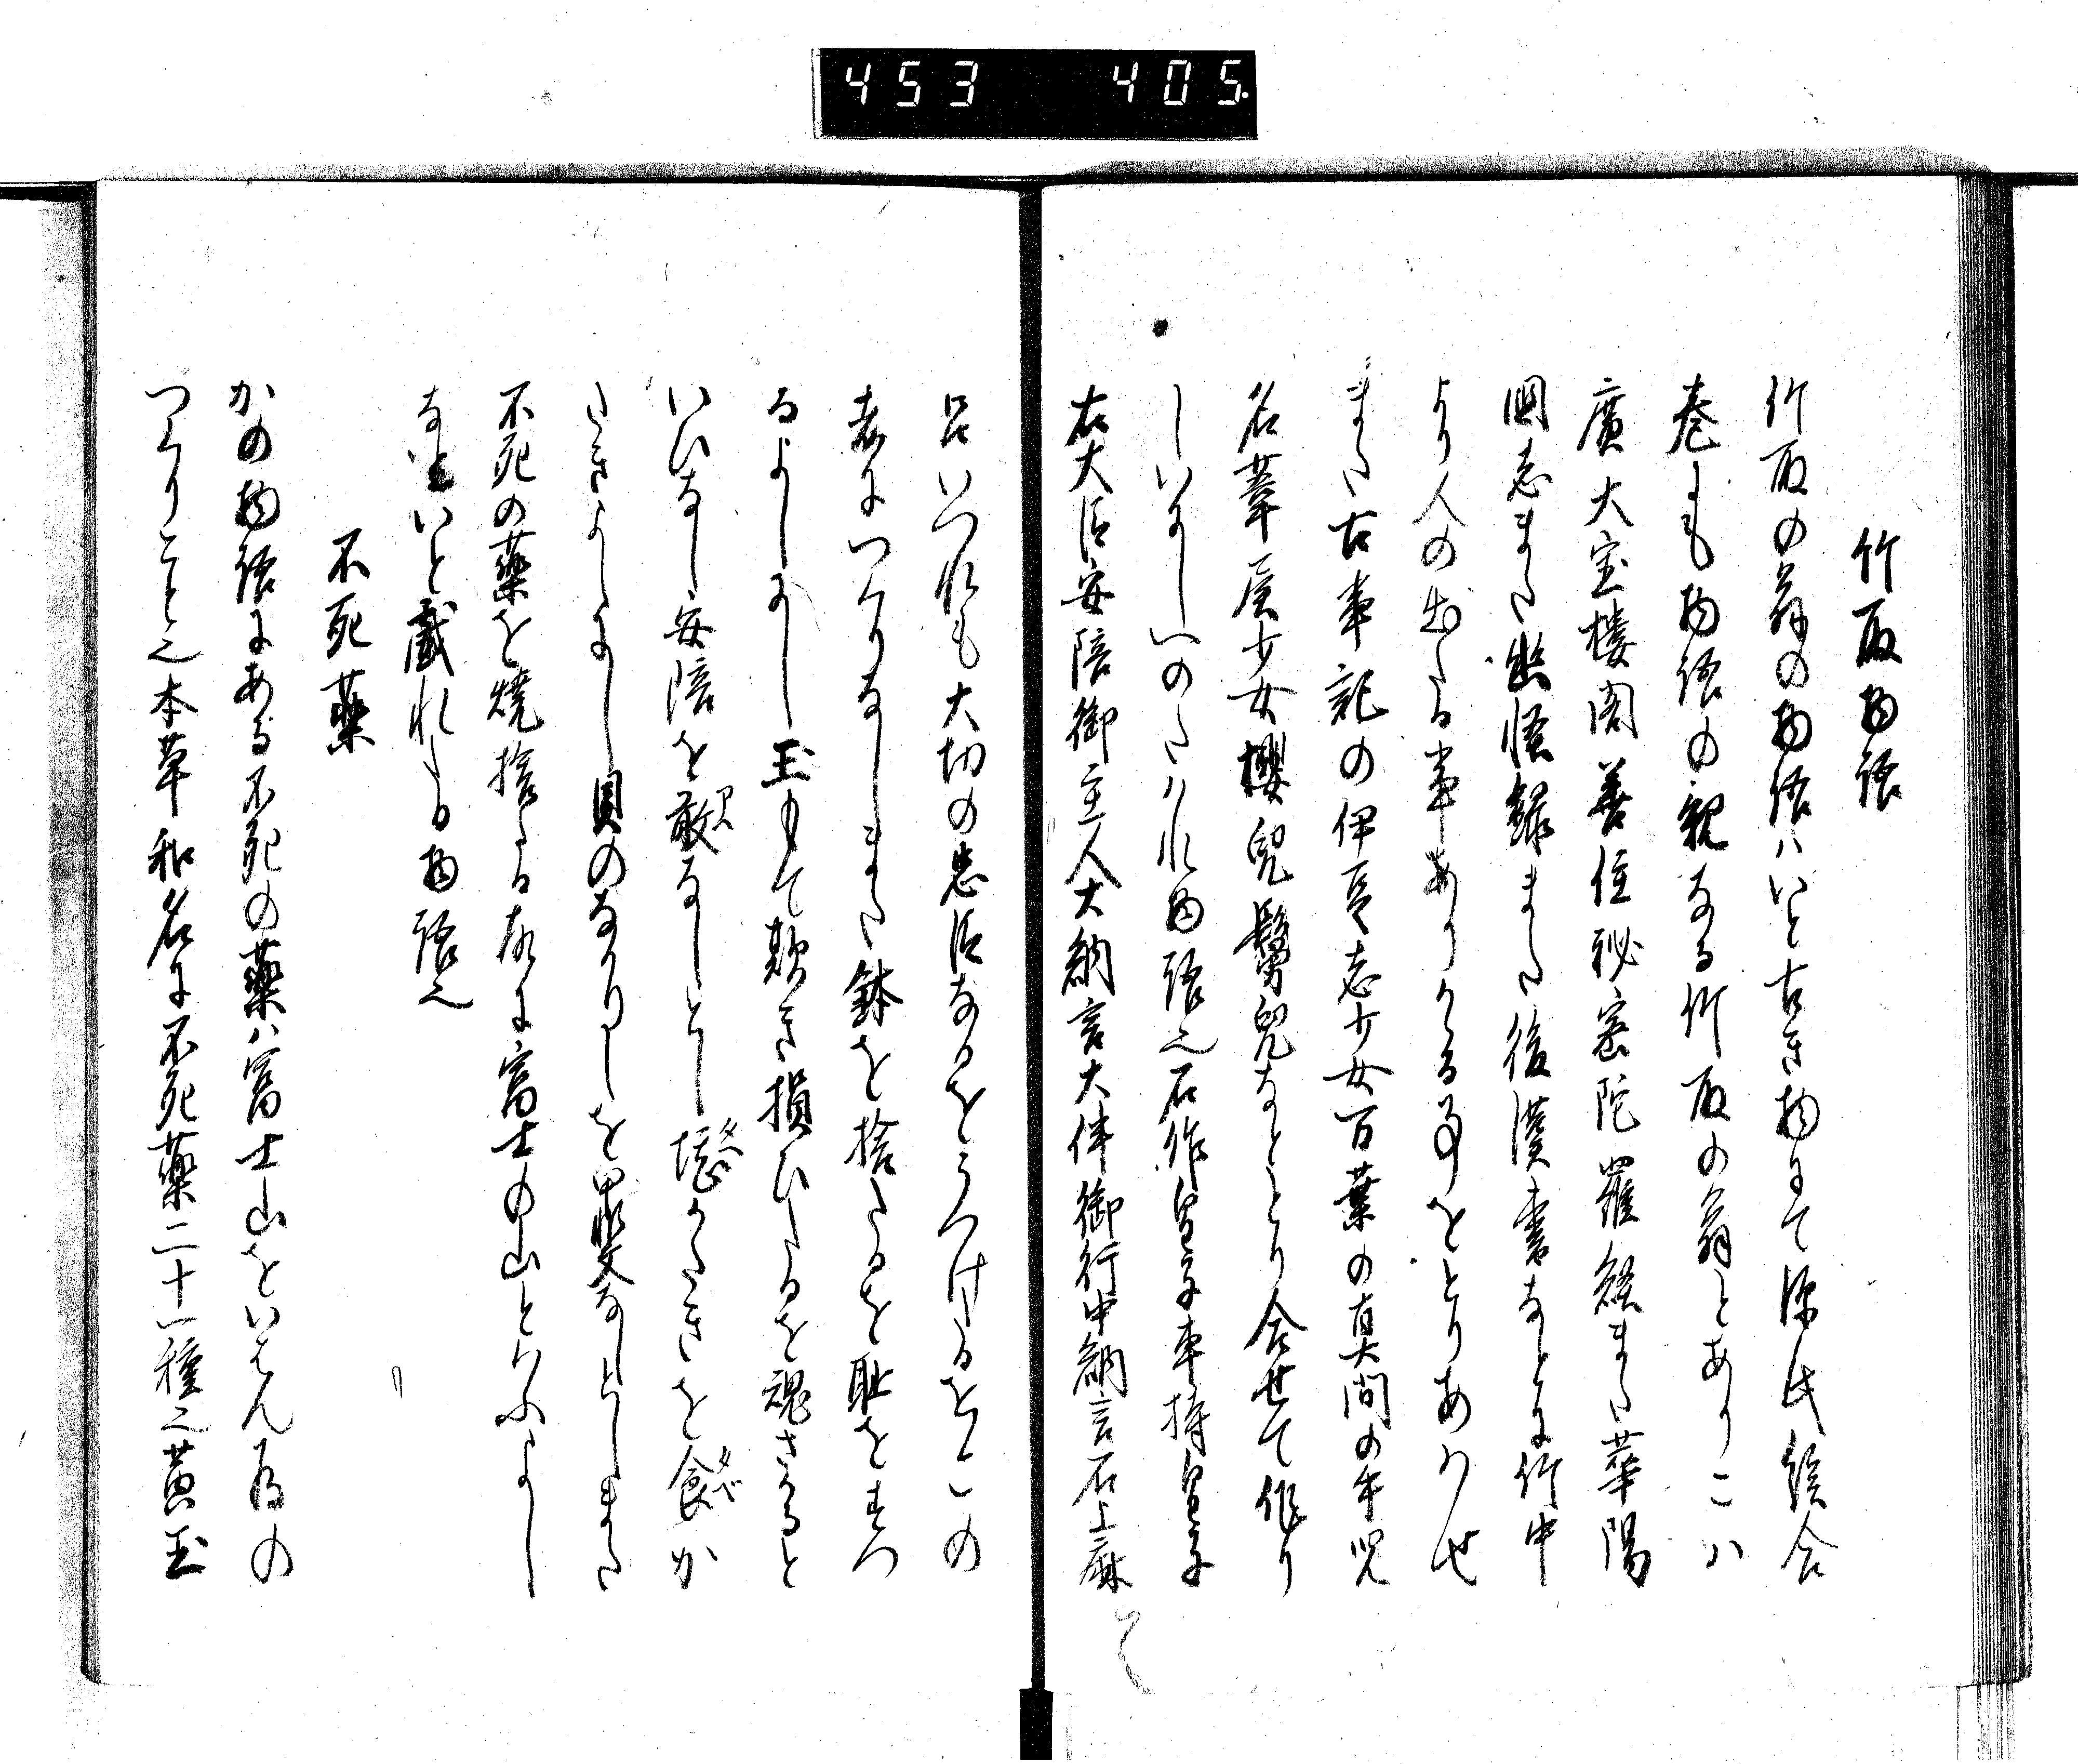 453 405
竹取物語
竹取の翁の物語ハいと古き物にて源氏絵合
巻にも物語の親なる竹取の翁とありこハ
廣大宝樓閣善住祕密陀羅経また華陽
國志また幽怪録また後漢書なとに竹中
より人の出たる事ありかかる事をとりあハせ
また古事記の伊豆志少女万葉の真間の手児
名葦屋少女櫻兒鬘兒なととり合せて作り
しいにしへのたハれ物語也石作皇子車持皇子
右大臣安陪御主人大納言大伴御行中納言石上麻
呂いつれも大切の忠臣なるをうつけたるをこの
者につくりなしまた鉢を捨たるを耻をすつ
るよしにし玉もて欺き損ひたるを魂さかると
いひなし安陪を敢なしとし堪かたきを食か
たきよしにし貝のなかりしを甲斐なしとしまた
不死の薬を焼捨たる故に富士の山といふよし
なといと戯れたる物語也
不死薬
かの物語にある不死の薬ハ富士山をいはん為の
つくりこと也本草和名に不死薬二十一種之黄玉